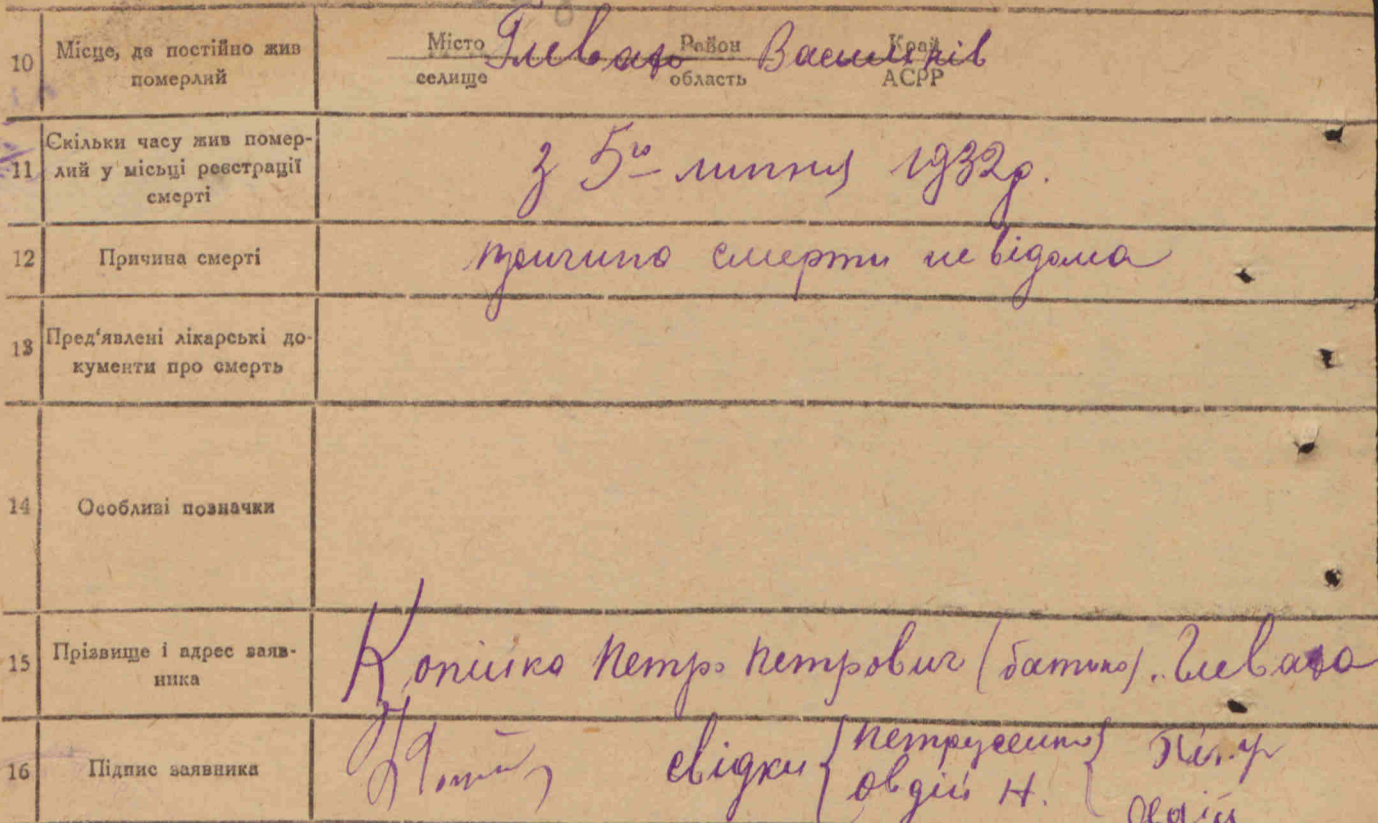 10 Місце, де постійно жив померлий
Місто селище Глеваха Район область Василків Край АСРР
11 Скільки часу жив помер-
лий у місьці реєстрації
смерті
з 5го липня 1932р.
12 Причина смерті
причина смерти не відома
13 Пред'явлені лікарські до-
кументи про смерть
14 Особливі позначки
15 Прізвище і адрес заяв-
ника
Копійка Петро Петрович (батько). Глеваха
16 Підпис заявника
свідки { Петрусенко
Овдій Н.
Овдій